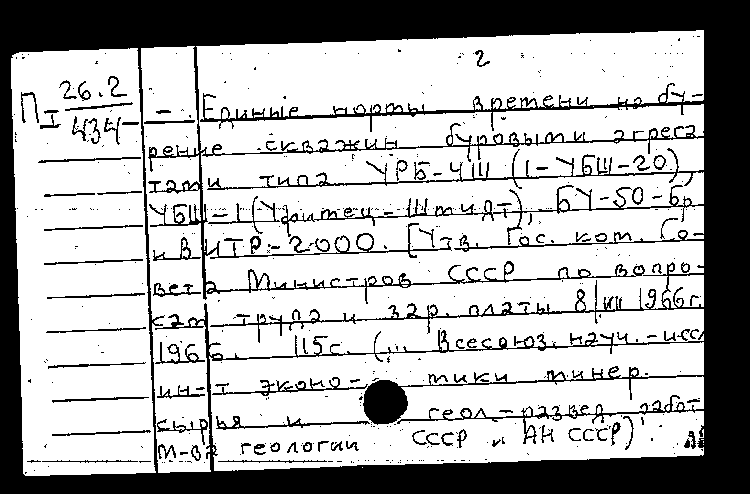 2
ПI 26.2/434 —. Единые нормы времени на бу-
рение скважин буровыми агрега-
тами типа УРБ-4Ш (1-УБШ-20),
УБШ-1 (Уфимец-Шмидт), БУ-50-Бр
и ВИТР-2000. [Утв. Гос. ком. Со-
вета Министров СССР по вопро-
сам труда и зар. платы 8/ 1966г.
1966. 115с. (... Всесоюз. науч.-иссл
ин-т эконо- мики минер.
сырья и геол.-развед. работ
М-ва геологии СССР и АН СССР).